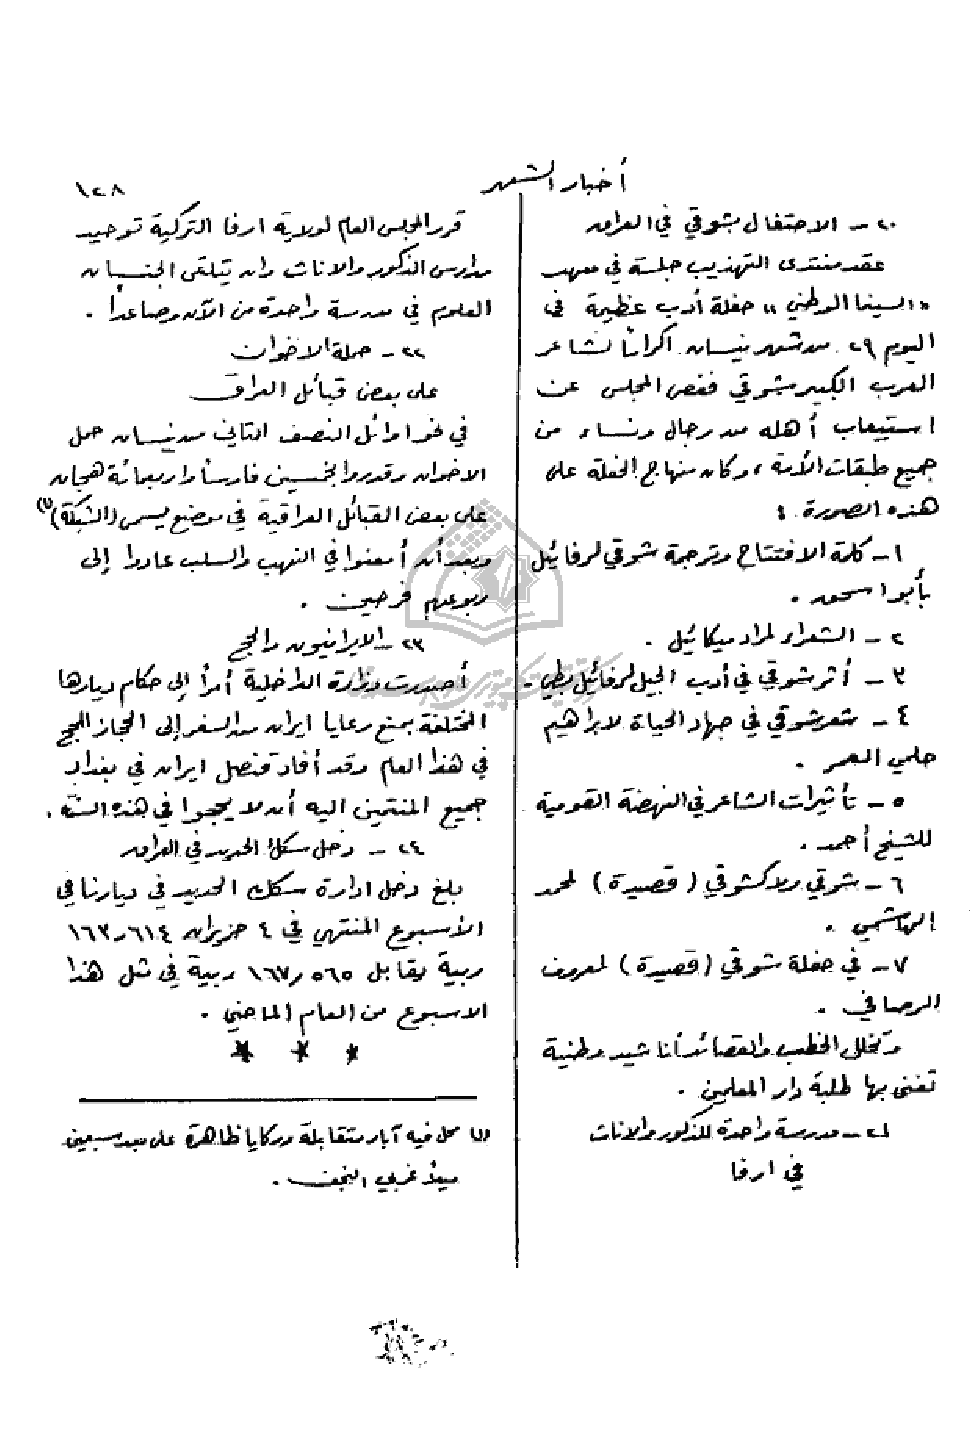 أخبار الشهر
١٢٨
٢٠ - الاحتفال بشوقي في العراق
عقد منتدى التهذيب جلسة في معهد
«السينما الوطني» حفلة أدب عظيمة في
اليوم ٢٩ من شهر نيسان اكراماً لشاعر
العرب الكبير شوقي فغص المجلس عن
استيعاب أهله من رجال ونساء من
جميع طبقات الأمة، وكان منهاج الحفلة على
هذه الصورة :
١ - كلمة الافتتاح وترجمة شوقي لرفائيل
بابو اسحق .
٢ - الشعراء لمراد ميكائيل .
٣ - أثر شوقي في أدب الجيل لرفائيل بطي .
٤ - شعر شوقي في جهاد الحياة لابراهيم
حلمي العمر .
٥ - تأثيرات الشاعر في النهضة القومية
للشيخ أحمد .
٦ - شوقي وملا كشوقي (قصيدة) لمحمد
الهاشمي .
٧ - في حفلة شوقي (قصيدة) لمعروف
الرصافي .
وتخلل الخطب والقصائد أناشيد وطنية
تغنى بها طلبة دار المعلمين .
٢١ - مدرسة واحدة للذكور والاناث
في ارفا
قرر المجلس العام لولاية ارفا التركية توحيد
مدارس الذكور والاناث وان يتلقى الجنسان
العلوم في مدرسة واحدة من الآن وصاعداً .
٢٢ - حملة الاخوان
على بعض قبائل العراق
في نحو اوائل النصف الثاني من نيسان حمل
الاخوان وقدروا بخمسين فارساً واربعمائة هجان
على بعض القبائل العراقية في موضع يسمى (الشبكة) (١)
وبعد أن أمعنوا في النهب والسلب عادوا إلى
ربوعهم فرحين .
٢٣ - الايرانيون والحج
أصدرت وزارة الداخلية أمراً إلى حكام ديارها
المختلفة بمنع رعايا ايران من السفر إلى الحجاز للحج
في هذا العام وقد أفاد قنصل ايران في بغداد
جميع المنتمين اليه أن لا يحجوا في هذه السنة .
٢٤ - دخل سكك الحديد في العراق
بلغ دخل ادارة سكك الحديد في ديارنا في
الأسبوع المنتهي في ٤ حزيران ١٦٣٫٦١٤
ربية يقابل ١٦٧٫٥٦٥ ربية في مثل هذا
الاسبوع من العام الماضي .
* * *
(١) محل فيه آبار متقابلة وركايا ظاهرة على بعد سبعين
ميلاً غربي النجف .